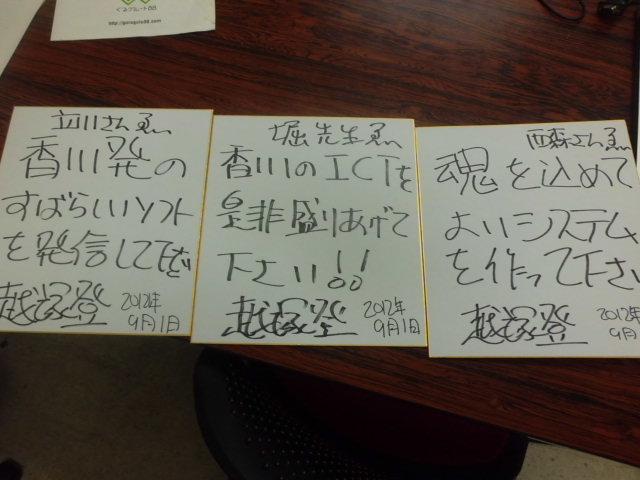 ぐるグルメート88
http://guruguru88.com
立川さん江
香川発の
すばらしいソフト
を発信して下さい
越塚登
2012年
9月1日
堀先生江
香川のICTを
是非盛りあげて
下さい!!
越塚登
2012年
9月1日
西森さん江
魂を込めて
よいシステム
を作って下さい
越塚登
2012年
9月